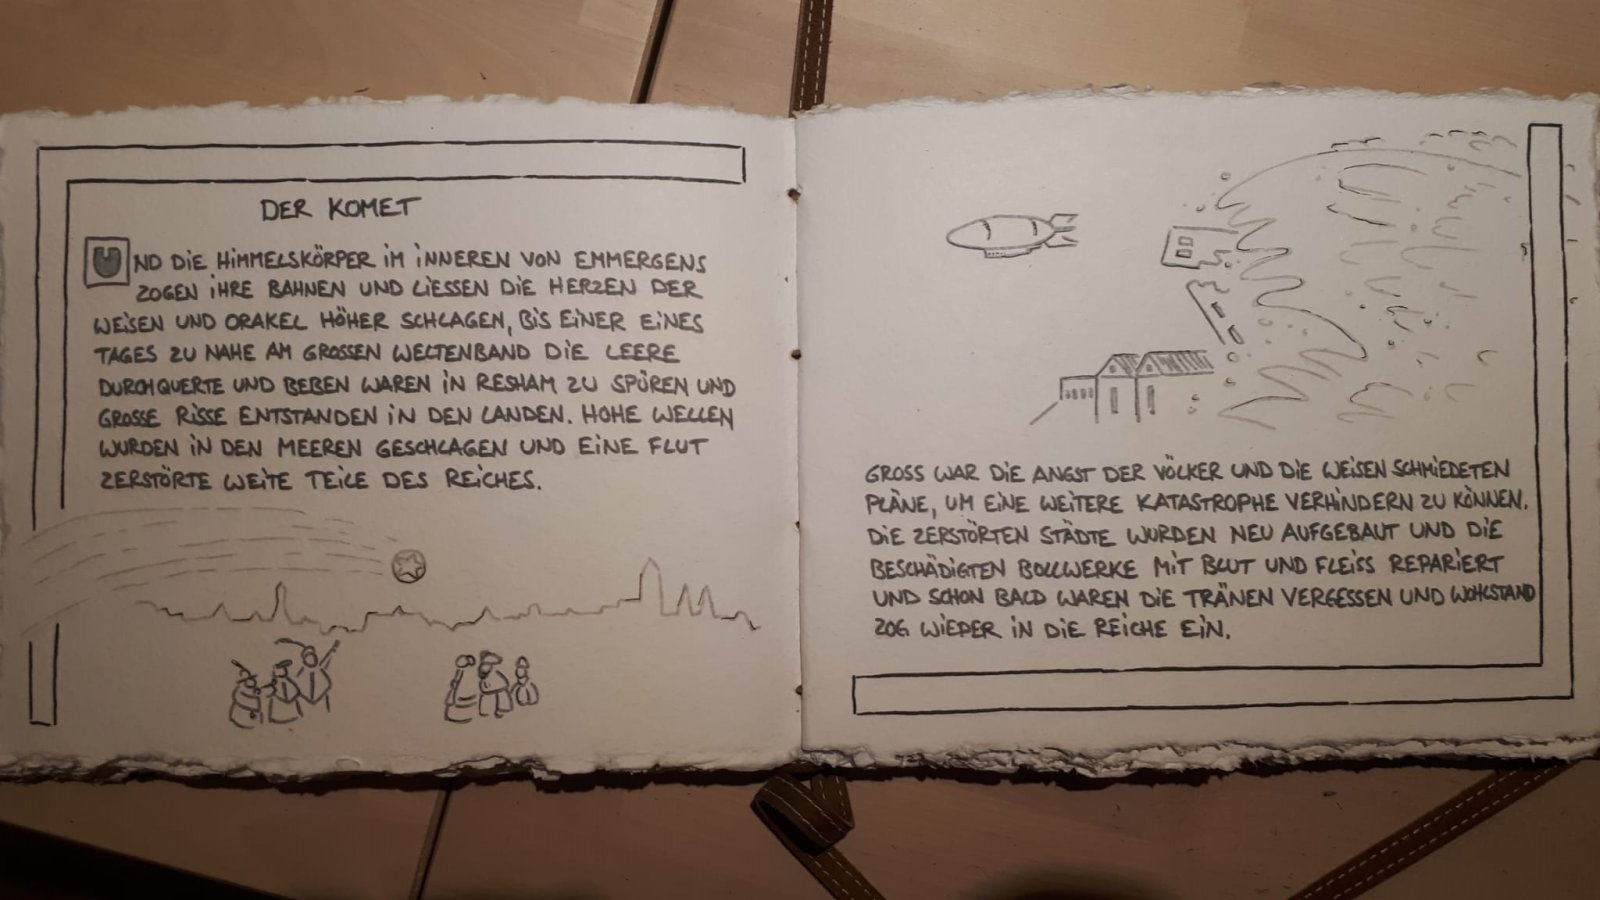 DER KOMET
UND DIE HIMMELSKÖRPER IM INNEREN VON EMMERGENS
ZOGEN IHRE BAHNEN UND LIESSEN DIE HERZEN DER
WEISEN UND ORAKEL HÖHER SCHLAGEN, BIS EINER EINES
TAGES ZU NAHE AM GROSSEN WELTENBAND DIE LEERE
DURCHQUERTE UND BEBEN WAREN IN RESHAM ZU SPÜREN UND
GROSSE RISSE ENTSTANDEN IN DEN LANDEN. HOHE WELLEN
WURDEN IN DEN MEEREN GESCHLAGEN UND EINE FLUT
ZERSTÖRTE WEITE TEILE DES REICHES.
GROSS WAR DIE ANGST DER VÖLKER UND DIE WEISEN SCHMIEDETEN
PLÄNE, UM EINE WEITERE KATASTROPHE VERHINDERN ZU KÖNNEN.
DIE ZERSTÖRTEN STÄDTE WURDEN NEU AUFGEBAUT UND DIE
BESCHÄDIGTEN BOLLWERKE MIT BLUT UND FLEISS REPARIERT
UND SCHON BALD WAREN DIE TRÄNEN VERGESSEN UND WOHLSTAND
ZOG WIEDER IN DIE REICHE EIN.